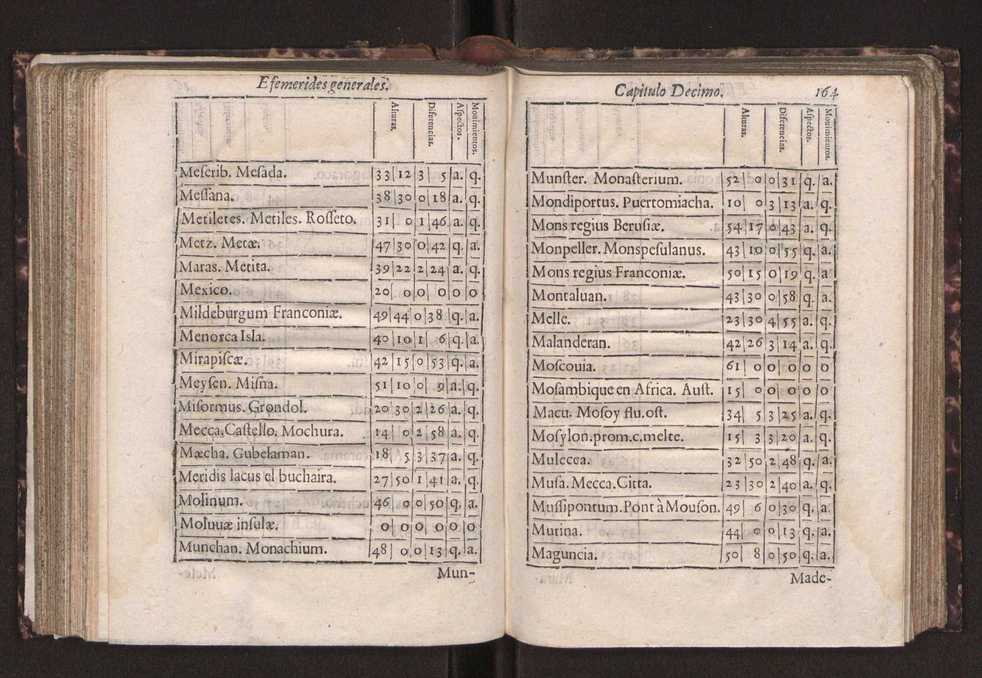 Efemerides generales.
Alturas. Diferencias. Aspectos. Mouimientos.
Mescrib. Mesada. 33 12 3 5 a. q.
Messana. 38 30 0 18 a. q.
Metiletes. Metiles. Rosseto. 31 0 1 46 a. q.
Metz. Metæ. 47 30 0 42 q. a.
Maras. Metita. 39 22 2 24 a. q.
Mexico. 20 0 0 0 0 0
Mildeburgum Franconiæ. 49 44 0 38 q. a.
Menorca Isla. 40 10 1 6 q. a.
Mirapiscæ. 42 15 0 53 q. a.
Meysen. Misna. 51 10 0 9 a. q.
Misormus. Grondol. 20 30 2 26 a. q.
Mecca, Castello. Mochura. 14 0 2 58 a. q.
Mæcha. Gubelaman. 18 5 3 37 a. q.
Meridis lacus el buchaira. 27 50 1 41 a. q.
Molinum. 46 0 0 50 q. a.
Moluuæ insulæ. 0 0 0 0 0 0
Munchan. Monachium. 48 0 0 13 q. a.
Mun-
Capitulo Decimo. 164
Alturas. Diferencias. Aspectos. Mouimientos.
Munster. Monasterium. 52 0 0 31 q. a.
Mondiportus. Puertomiacha. 10 0 3 13 a. q.
Mons regius Berusiæ. 54 17 0 43 a. q.
Monpeller. Monspesulanus. 43 10 0 55 q. a.
Mons regius Franconiæ. 50 15 0 19 q. a
Montaluan. 43 30 0 58 q. a.
Melle. 23 30 4 55 a. q.
Malanderan. 42 26 3 14 a. q.
Moscouia. 61 0 0 0 0 0
Mosambique en Africa. Aust. 15 0 0 0 0 0
Macu. Mosoy flu. ost. 34 5 3 25 a. q.
Mosylon. prom. c. melte. 15 3 3 20 a. q.
Mulecca. 32 50 2 48 q. a.
Musa. Mecca. Citta. 23 30 2 40 a. q.
Mussipontum. Pont à Mouson. 49 6 0 30 q. a.
Murina. 44 0 0 13 q. a.
Maguncia. 50 8 0 50 q. a.
Made-